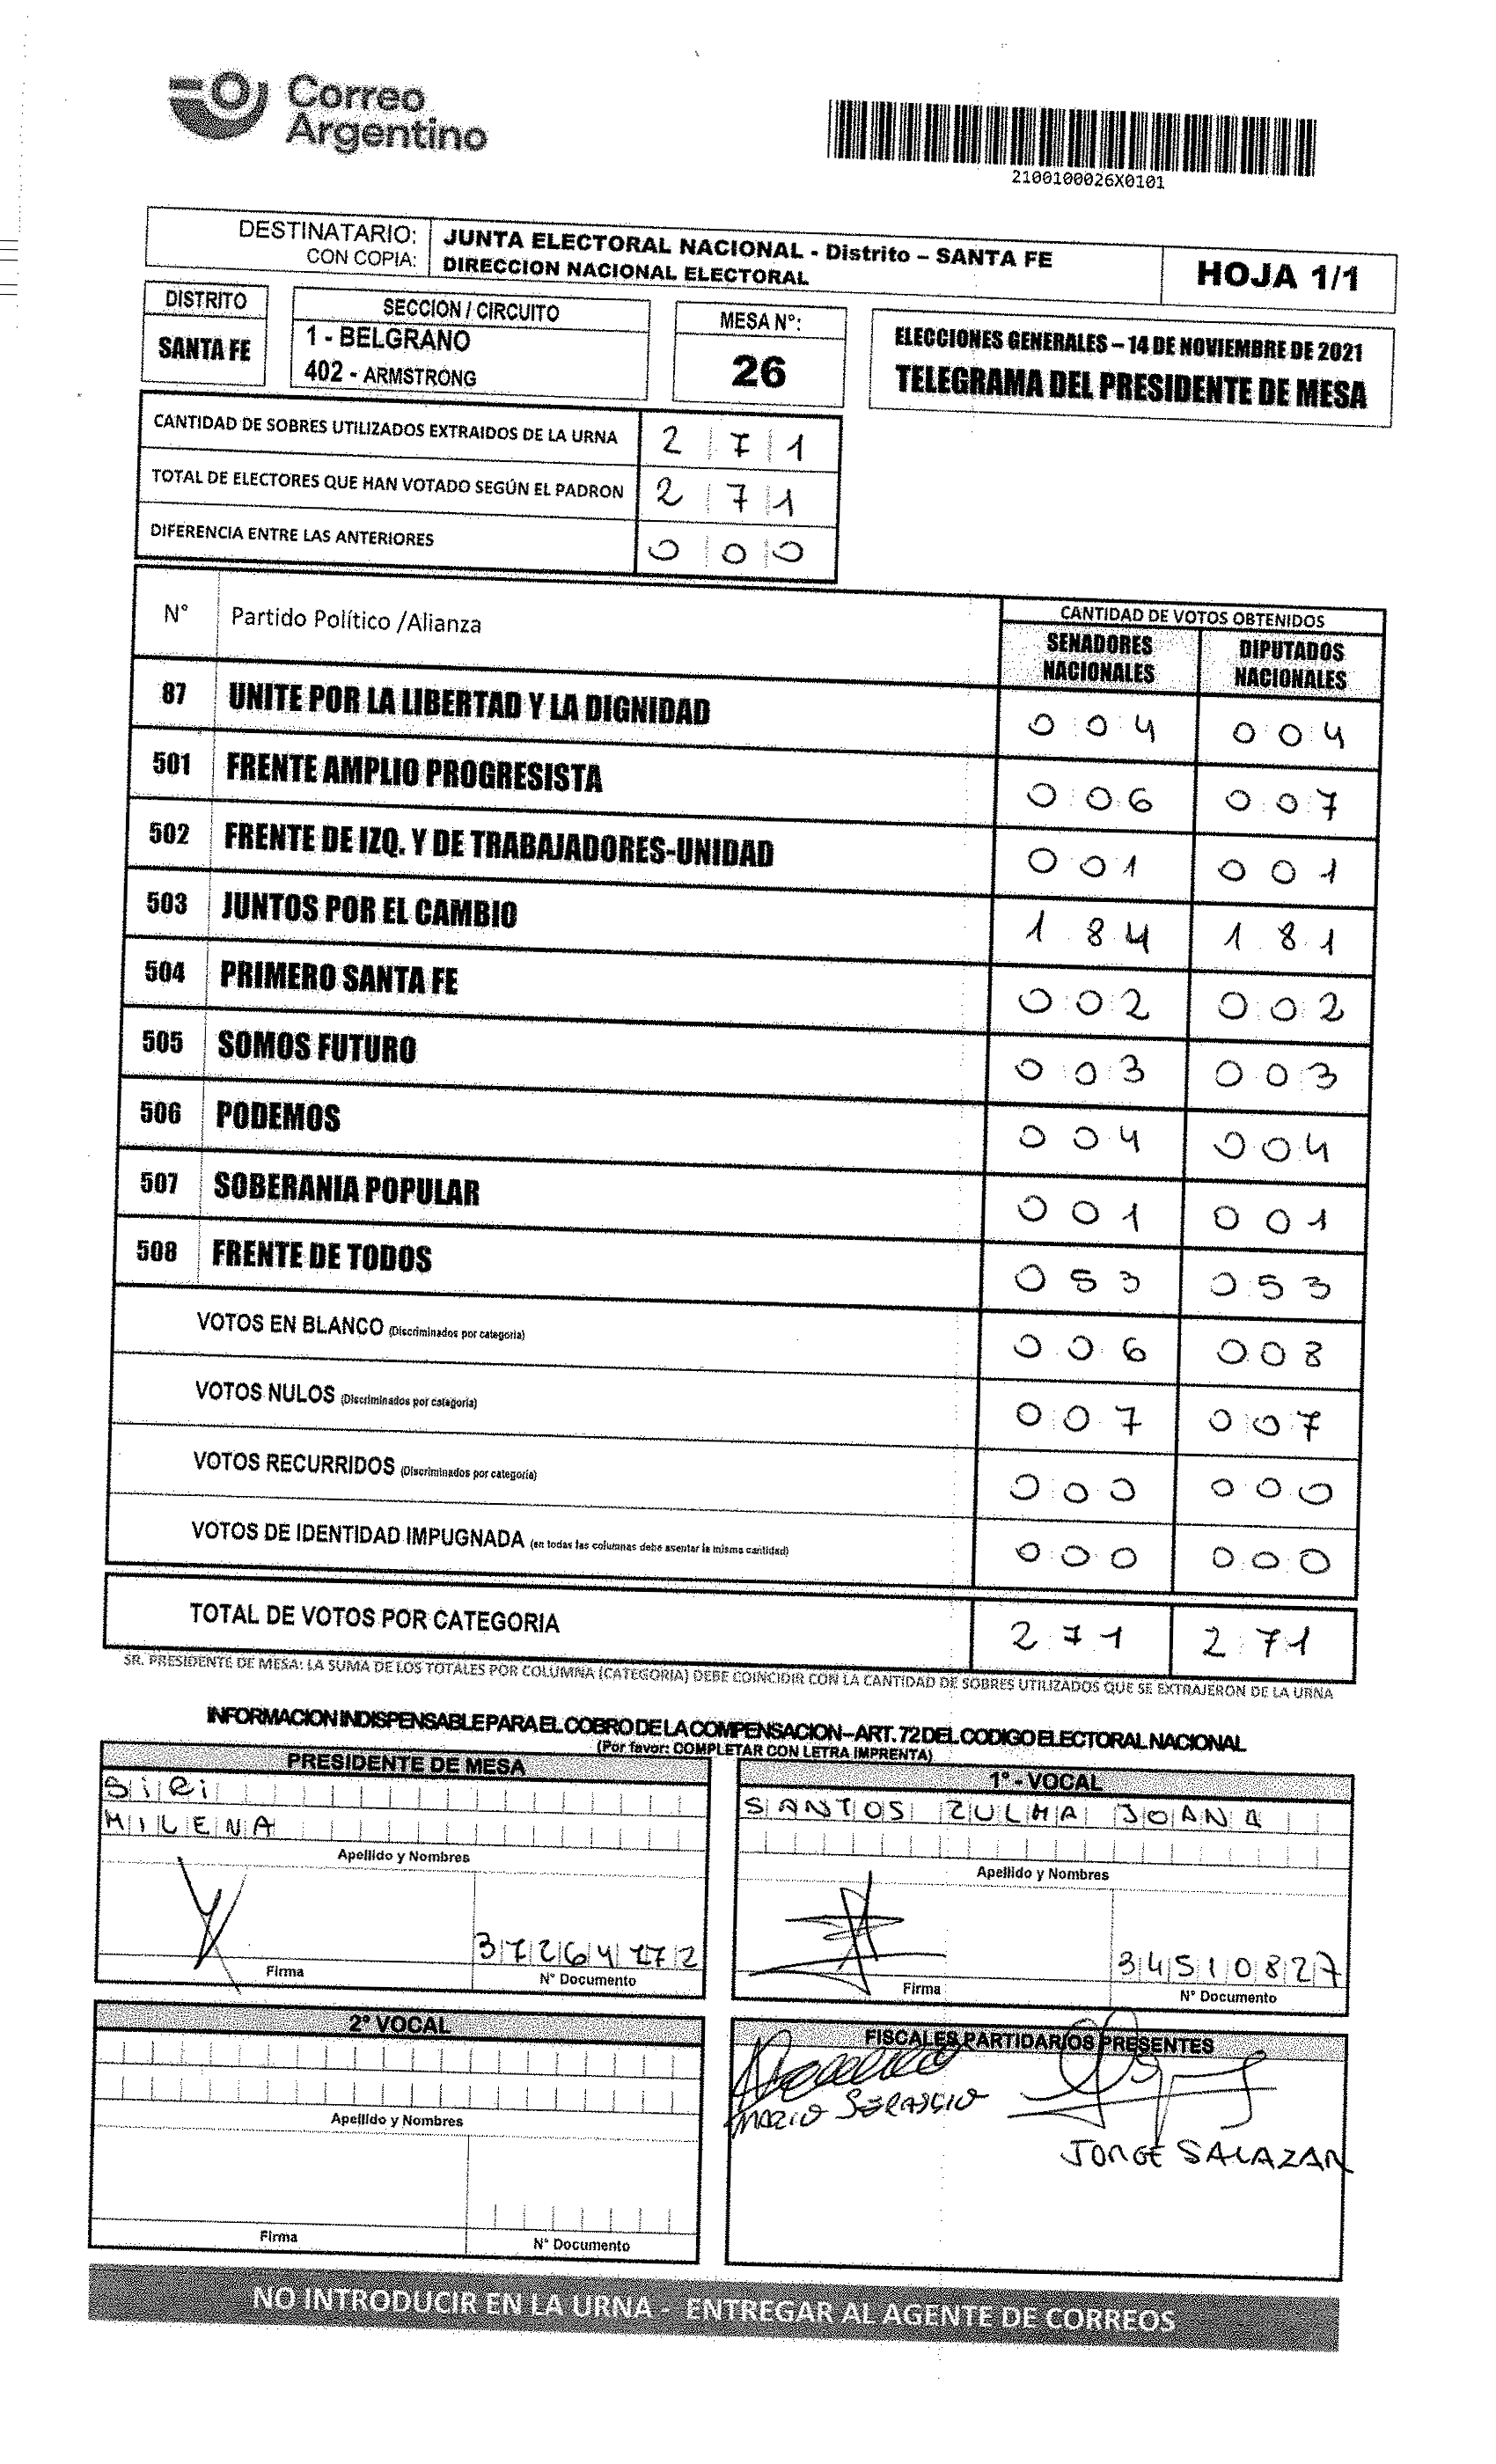 Correo
Argentino
2100100026X0101
DESTINATARIO: JUNTA ELECTORAL NACIONAL - Distrito – SANTA FE
CON COPIA: DIRECCION NACIONAL ELECTORAL
HOJA 1/1
DISTRITO
SANTA FE
SECCION / CIRCUITO
1 - BELGRANO
402 - ARMSTRONG
MESA N°:
26
ELECCIONES GENERALES – 14 DE NOVIEMBRE DE 2021
TELEGRAMA DEL PRESIDENTE DE MESA
CANTIDAD DE SOBRES UTILIZADOS EXTRAIDOS DE LA URNA 2 7 1
TOTAL DE ELECTORES QUE HAN VOTADO SEGÚN EL PADRON 2 7 1
DIFERENCIA ENTRE LAS ANTERIORES 0 0 0
N° Partido Político /Alianza
CANTIDAD DE VOTOS OBTENIDOS
SENADORES NACIONALES
DIPUTADOS NACIONALES
87 UNITE POR LA LIBERTAD Y LA DIGNIDAD 0 0 4 0 0 4
501 FRENTE AMPLIO PROGRESISTA 0 0 6 0 0 7
502 FRENTE DE IZQ. Y DE TRABAJADORES-UNIDAD 0 0 1 0 0 1
503 JUNTOS POR EL CAMBIO 1 8 4 1 8 1
504 PRIMERO SANTA FE 0 0 2 0 0 2
505 SOMOS FUTURO 0 0 3 0 0 3
506 PODEMOS 0 0 4 0 0 4
507 SOBERANIA POPULAR 0 0 1 0 0 1
508 FRENTE DE TODOS 0 5 3 0 5 3
VOTOS EN BLANCO (Discriminados por categoria) 0 0 6 0 0 8
VOTOS NULOS (Discriminados por categoria) 0 0 7 0 0 7
VOTOS RECURRIDOS (Discriminados por categoria) 0 0 0 0 0 0
VOTOS DE IDENTIDAD IMPUGNADA (en todas las columnas debe asentar la misma cantidad) 0 0 0 0 0 0
TOTAL DE VOTOS POR CATEGORIA 2 7 1 2 7 1
SR. PRESIDENTE DE MESA: LA SUMA DE LOS TOTALES POR COLUMNA (CATEGORIA) DEBE COINCIDIR CON LA CANTIDAD DE SOBRES UTILIZADOS QUE SE EXTRAJERON DE LA URNA
INFORMACION INDISPENSABLE PARA EL COBRO DE LA COMPENSACION – ART. 72 DEL CODIGO ELECTORAL NACIONAL
(Por favor: COMPLETAR CON LETRA IMPRENTA)
PRESIDENTE DE MESA
SiRi
MILENA
Apellido y Nombres
37264772
Firma N° Documento
1° - VOCAL
SANTOS ZULMA JOANA
Apellido y Nombres
34510827
Firma N° Documento
2° VOCAL
Apellido y Nombres
Firma N° Documento
FISCALES PARTIDARIOS PRESENTES
MARIO
JORGE SALAZAR
NO INTRODUCIR EN LA URNA - ENTREGAR AL AGENTE DE CORREOS